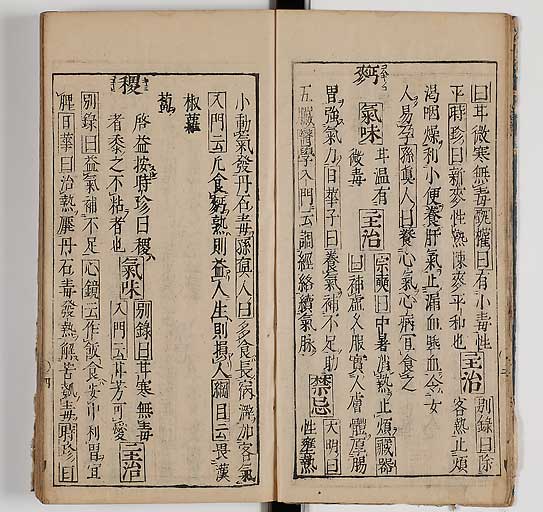 曰甘微寒無毒甄權曰有小毒性
平時珍曰新麥性熱陳麥平和也 主治 別録曰除客熱止煩
渇咽燥利小便養肝氣止漏血唾血令女
人易孕孫真人曰養心氣心病宜食之
麪
氣味 甘温有微毒 主治 宗奭曰中暑消熱止煩藏器曰補虚久服實人膚體厚腸
胃強氣力日華子曰養氣補不足助
五臓醫學入門云調經絡續氣脉 禁忌 大明曰性壅熱
小動氣發丹石毒孫真人曰多食長病加客氣
入門云凡食麪熟則益人生則損人綱目云畏漢
椒蘿
蔔
稷
啓益按時珍曰稷
者黍之不粘者也 氣味 別録曰甘寒無毒入門云甘芳可愛 主治
別録曰益氣補不足心鏡云作飯食安中利胃宜
脾日華曰治熱壓丹石毒發熱解苦瓠毒時珍曰